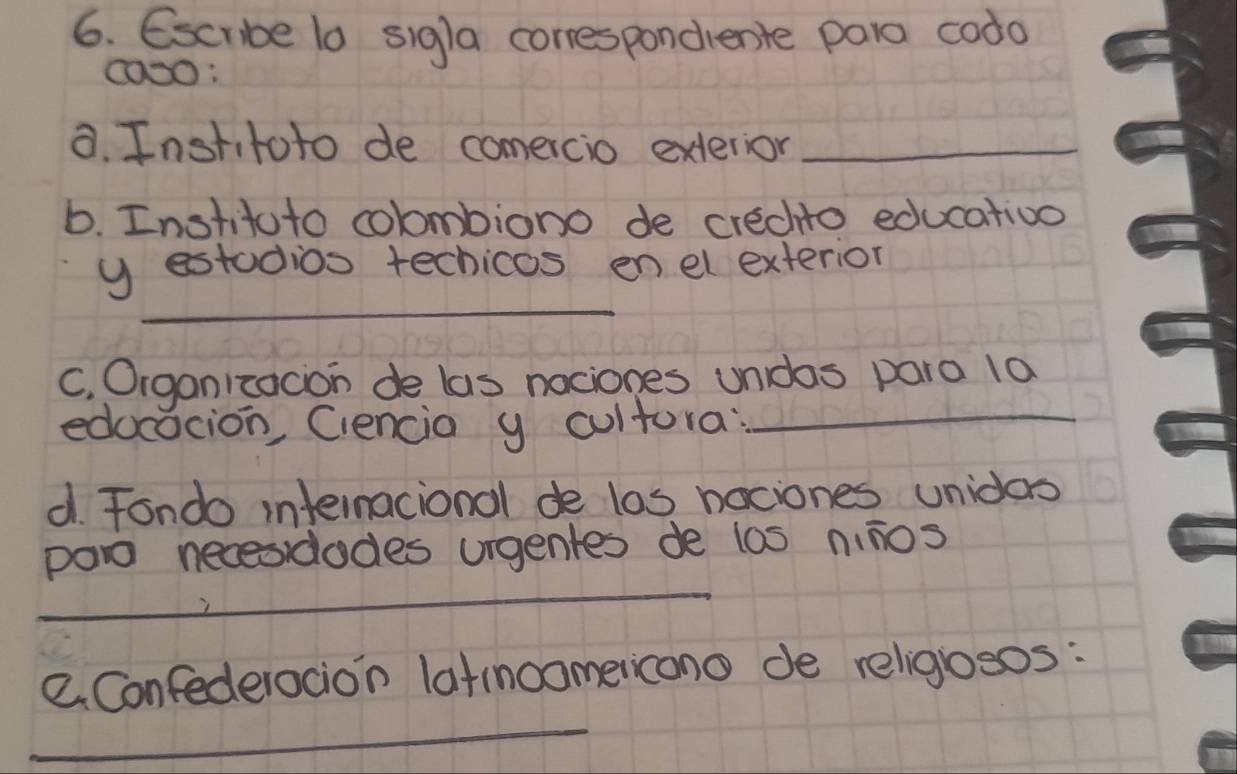 6. Escribe la sigla correspondiente para cada
caso:
a. Instituto de comercio exterior ___________
b. Instituto colombiano de crédito educativo
y estudios tecnicos en el exterior
___________
c. Organización de las naciones unidas para la
educación, Ciencia y cultura: ___________
d. Fondo internacional de las naciones unidas
para necesidades urgentes de los niños
___________
e. Confederación latinoamericano de religiosos:
___________